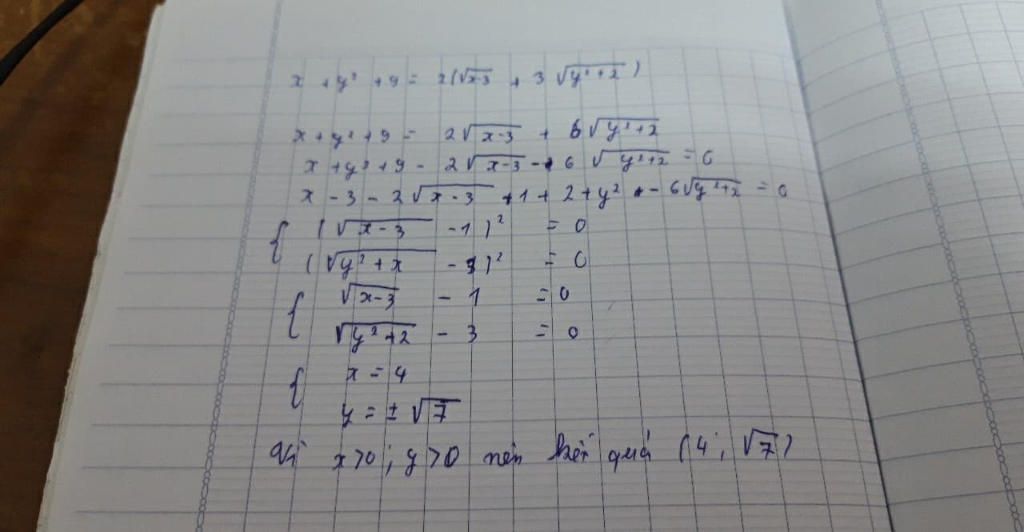 x + y² + 9 = 2(√x-3 + 3√y²+2)
x + y² + 9 = 2√x-3 + 6√y²+2
x + y² + 9 - 2√x-3 - 6√y²+2 = 0
x - 3 - 2√x-3 + 1 + 2 + y² - 6√y²+2 = 0
{ (√x-3 - 1)² = 0
(√y²+x - 3)² = 0
{ √x-3 - 1 = 0
√y²+2 - 3 = 0
{ x = 4
y = ±√7
Vì x>0; y>0 nên kết quả (4; √7)